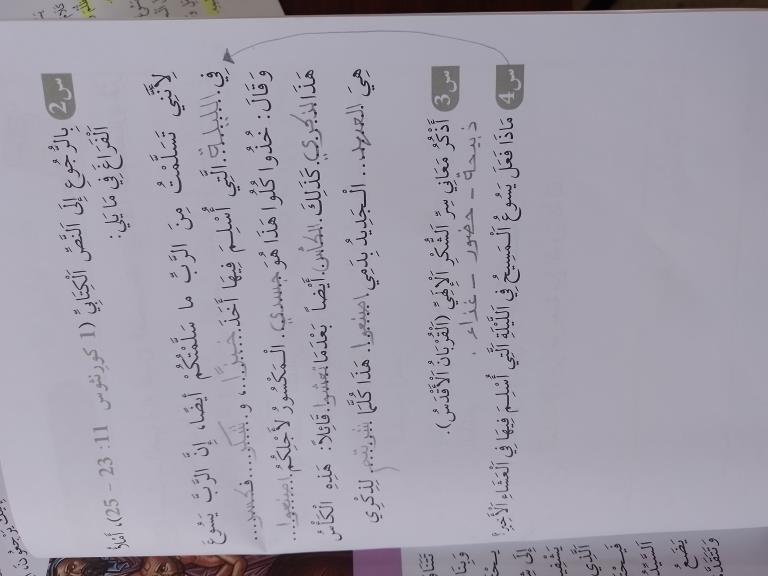 س2 بِالرُّجُوعِ إِلَى النَّصِّ الْكِتَابِيِّ (1 كورِنثوس 11: 23 - 25)، أَمْلَأُ
الْفَرَاغَ فِي مَا يَلِي:
لِأَنَّنِي تَسَلَّمْتُ مِنَ الرَّبِّ ما سَلَّمْتُكُمْ أَيْضًا، إِنَّ الرَّبَّ يَسُوعَ
فِي..الليلة..الَّتِي أُسْلِمَ فِيهَا أَخَذَ...خبزًا...، و...شكر...فكسر...
وَقَالَ: خُذُوا كُلُوا هَذَا هُوَ جسدي. الْمَكْسُورُ لِأَجْلِكُمُ اصنعوا...
هَذَا لذكري. كَذَلِكَ الكأس أَيْضاً بَعْدَمَا تعشوا قَائِلاً: هَذِهِ الْكَأْسُ
هِيَ العهد... الْجَدِيدُ بِدَمِي اصنعوا.. هَذَا كُلَّمَا شربتم لِذِكْرِي
س3 أَذْكُرُ مَعَانِي سِرِّ الشُّكْرِ الْإِلهِيِّ (الْقُرْبَانُ الْأَقْدَسُ).
ذبيحة - حضور - غذاء.
س4 مَاذَا فَعَلَ يَسُوعُ الْمَسِيحُ فِي اللَّيْلَةِ الَّتِي أُسْلِمَ فِيهَا فِي الْعَشَاءِ الْأَخِيرِ؟